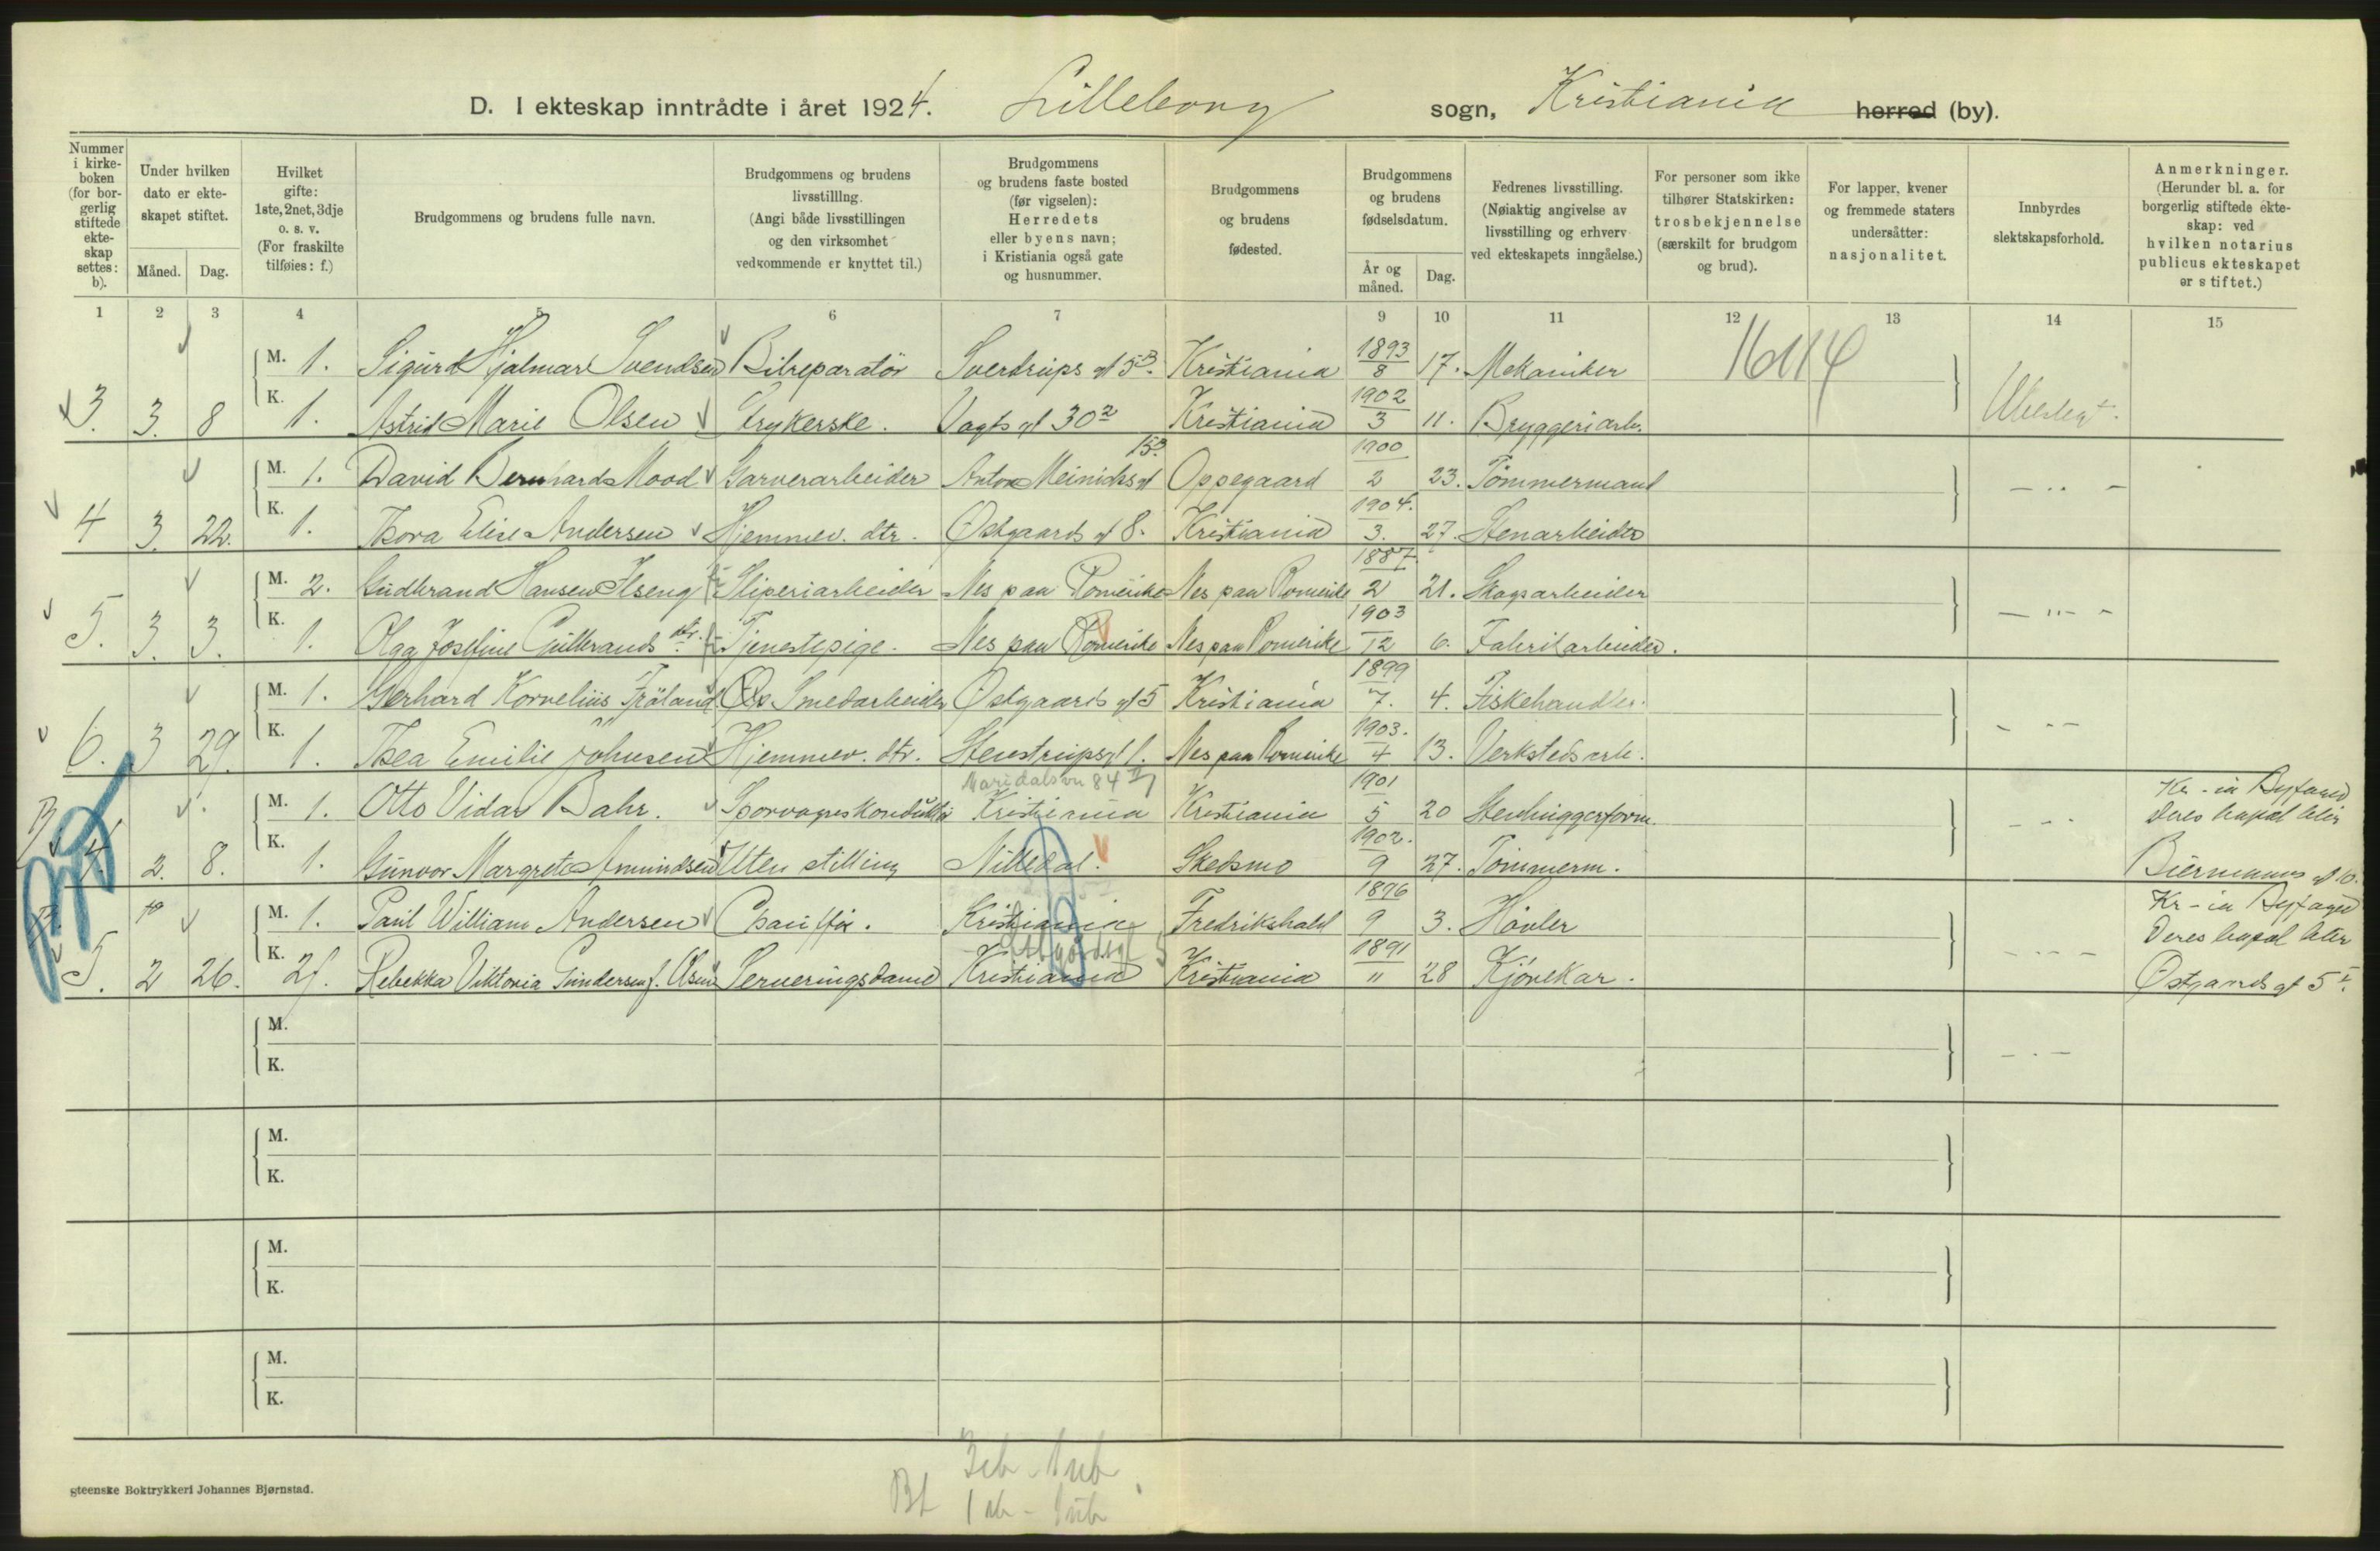 D. I ekteskap inntrådte i året 1924. Lilleborg sogn, Kristiania herred (by).
Nummer i kirkeboken (for borgerlig stiftede ekteskap settes: b).
Under hvilken dato er ekteskapet stiftet.
Måned. Dag.
Hvilket gifte: 1ste, 2net, 3dje o. s. v. (For fraskilte tilføies: f.)
Brudgommens og brudens fulle navn.
Brudgommens og brudens livsstilling. (Angi både livsstillingen og den virksomhet vedkommende er knyttet til.)
Brudgommens og brudens faste bosted (før vigselen): Herredets eller byens navn; i Kristiania også gate og husnummer.
Brudgommens og brudens fødested.
Brudgommens og brudens fødselsdatum.
År og måned. Dag.
Fedrenes livsstilling. (Nøiaktig angivelse av livsstilling og erhverv ved ekteskapets inngåelse.)
For personer som ikke tilhører Statskirken: trosbekjennelse (særskilt for brudgom og brud).
For lapper, kvener og fremmede staters undersåtter: nasjonalitet.
Innbyrdes slektskapsforhold.
Anmerkninger. (Herunder bl. a. for borgerlig stiftede ekteskap: ved hvilken notarius publicus ekteskapet er stiftet.)
1 2 3 4 5 6 7 9 10 11 12 13 14 15
M. 1. Sigurd Hjalmar Svendsen Bilreparatör Sverdrups gt 5 Kristiania 1893 8 17. Mekaniker
3. 3. 8 K. 1. Astrid Marie Olsen Strykerske. Vogts gt 30² Kristiania 1902 3 11. Bryggeriarb.
M. 1. David Bernhard Mood Garverarbeider Anton Meinichs gt 15 Oppegaard 1900 2 23. Tömmermand
4 3. 22. K. 1. Thora Elise Andersen Hjemmev. dtr. Östgaards gt 8. Kristiania 1904. 3. 27. Stenarbeider
M. 2. Gudbrand Hansen Ilseng Sliperiarbeider Nes paa Romerike Nes paa Romerike 1887 2 21. Skogsarbeider
5. 3. 3. K. 1. Olga Josefine Gulbrandsdtr. Tjenestepige. Nes paa Romerike Nes paa Romerike 1903 12 6. Fabrikarbeider.
M. 1. Gerhard Kornelius Fröland Smedarbeider Östgaards gt 5 Kristiania 1899 7. 4. Fiskehandler.
6. 3 29. K. 1. Thea Emilie Johnsen Hjemmev. dtr. Stenstrupsgt 1. Nes paa Romerike 1903. 4 13. Verkstedsarb.
Maridalsvn 84
M. 1. Otto Vidar Bahr. Sporvognskonduktör Kristiania Kristiania 1901 5 20 Stenhuggerform. Kr-ia Byfoged
Deres bopæl blir
4. 2. 8. K. 1. Gunvor Margrete Amundsen Uten stilling Nittedal. Skedsmo 1902. 9 27. Tömmerm. Biermanns gt 10.
M. 1. Paul William Andersen Chaufför. Kristiania Fredrikshald 1896 9 3. Hövler Kr-ia Byfoged
Deres bopæl blir
5. 2 26. K. 2f. Rebekka Viktoria Gundersen f. Olsen Serveringsdame Kristiania Kristiania 1891 11 28 Kjörekar. Östgaards gt 5
M.
K.
M.
K.
M.
K.
M.
K.
Steenske Boktrykkeri Johannes Bjørnstad.